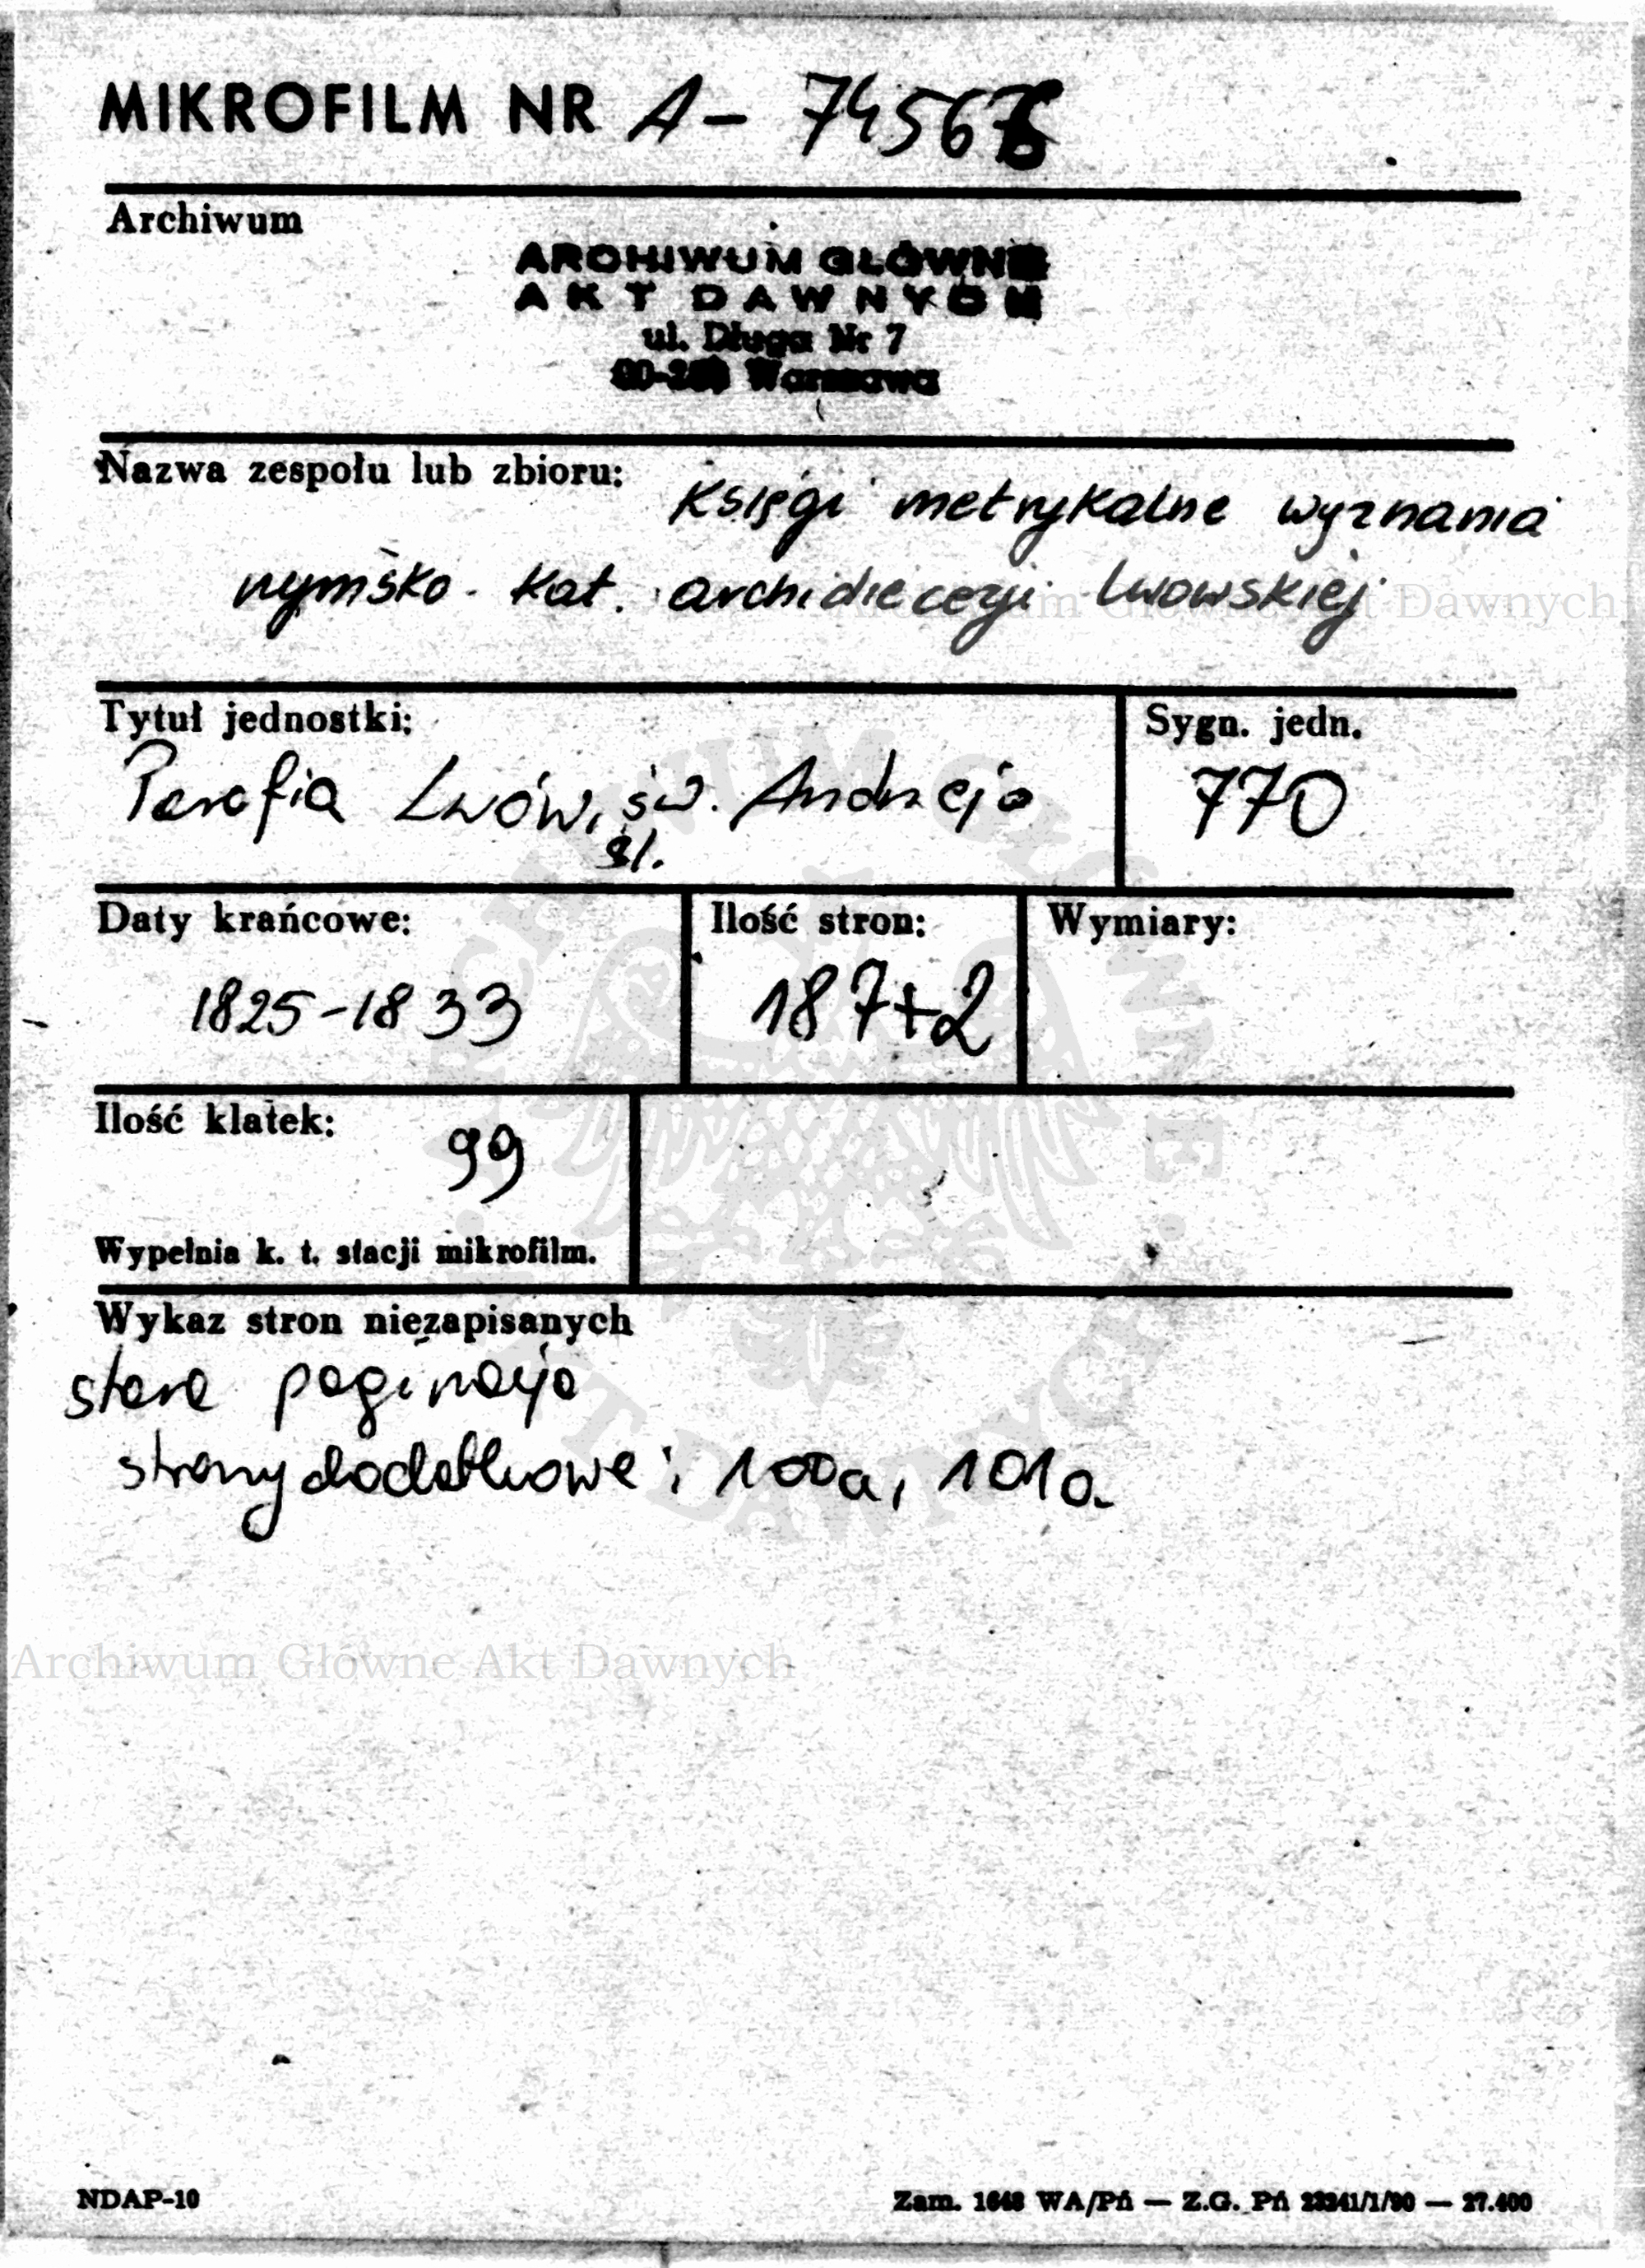 MIKROFILM NR A-7456
Archiwum
ARCHIWUM GŁÓWNE
AKT DAWNYCH
ul. Długa Nr 7
Warszawa
Nazwa zespołu lub zbioru: Księgi metrykalne wyznania
rzymsko-kat. archidiecezji Lwowskiej
Tytuł jednostki: Sygn. jedn.
Parafia Lwów, św. Andrzeja 770
Daty krańcowe: Ilość stron: Wymiary:
1825-1833 187+2
Ilość klatek:
99
Wypełnia k. t. stacji mikrofilm.
Wykaz stron niezapisanych
stara paginacja
strony dodatkowe: 100a, 101a
Archiwum Główne Akt Dawnych
NDAP-10 Zam. 1648 WA/Pń — Z.G. Pń — 27.400